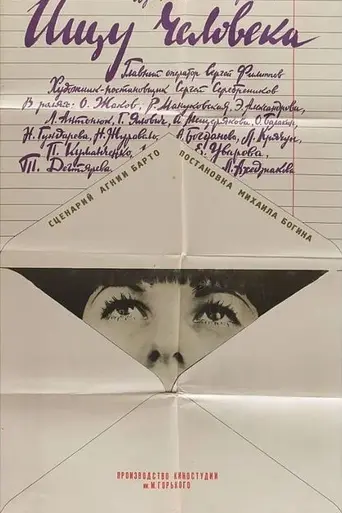 Ищу человека
Главный оператор Сергей Филиппов
Художник-постановщик Сергей Серебренников
В ролях: О. Жаков, Р. Мануковская, Э. Александрова,
Л. Антонюк, Г. Яцкович, А.
Н. Гундарева, Н. Журавель, А. Богданова, Л. Крячун,
П. Кулманченко, Е. Уварова,
Т. Дегтярева, Л. Ахеджакова
СЦЕНАРИЙ АГНИИ БАРТО
ПОСТАНОВКА МИХАИЛА БОГИНА
ПРОИЗВОДСТВО КИНОСТУДИИ
им. М. ГОРЬКОГО